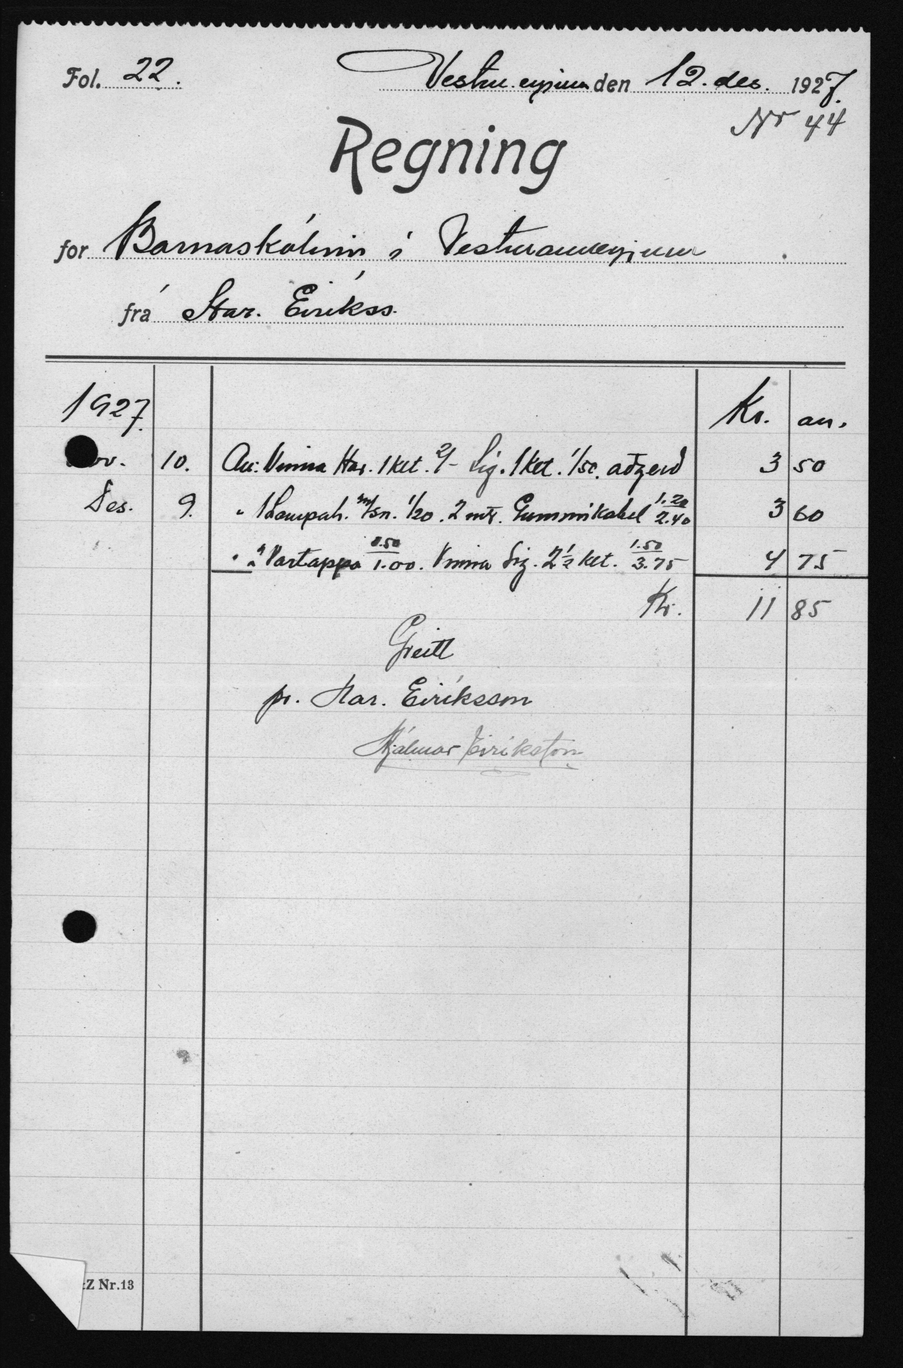 Fol. 22.
Vestm.eyjum den 12. des. 1927.
Nr 44
Regning
for Barnaskólinn í Vestmannaeyjum
frá Har. Eiríkss.
1927. Kr. au.
Nov. 10. An: Vinna Har. 1 ket. 2/- Sig. 1 ket. 1/50. aðgerð 3 50
Des. 9. " 1 Lampah. m/sn. 1/20. 2 mtr. Gummikabel 1.20 2.40 3 60
" 2 Vartappa 0.50 1.00. Vinna Sig. 2 1/2 ket. 1.50 3.75 4 75
Kr. 11 85
Greitt
pr. Har. Eiríksson
Hjálmar Eiríksson
Z Nr. 13